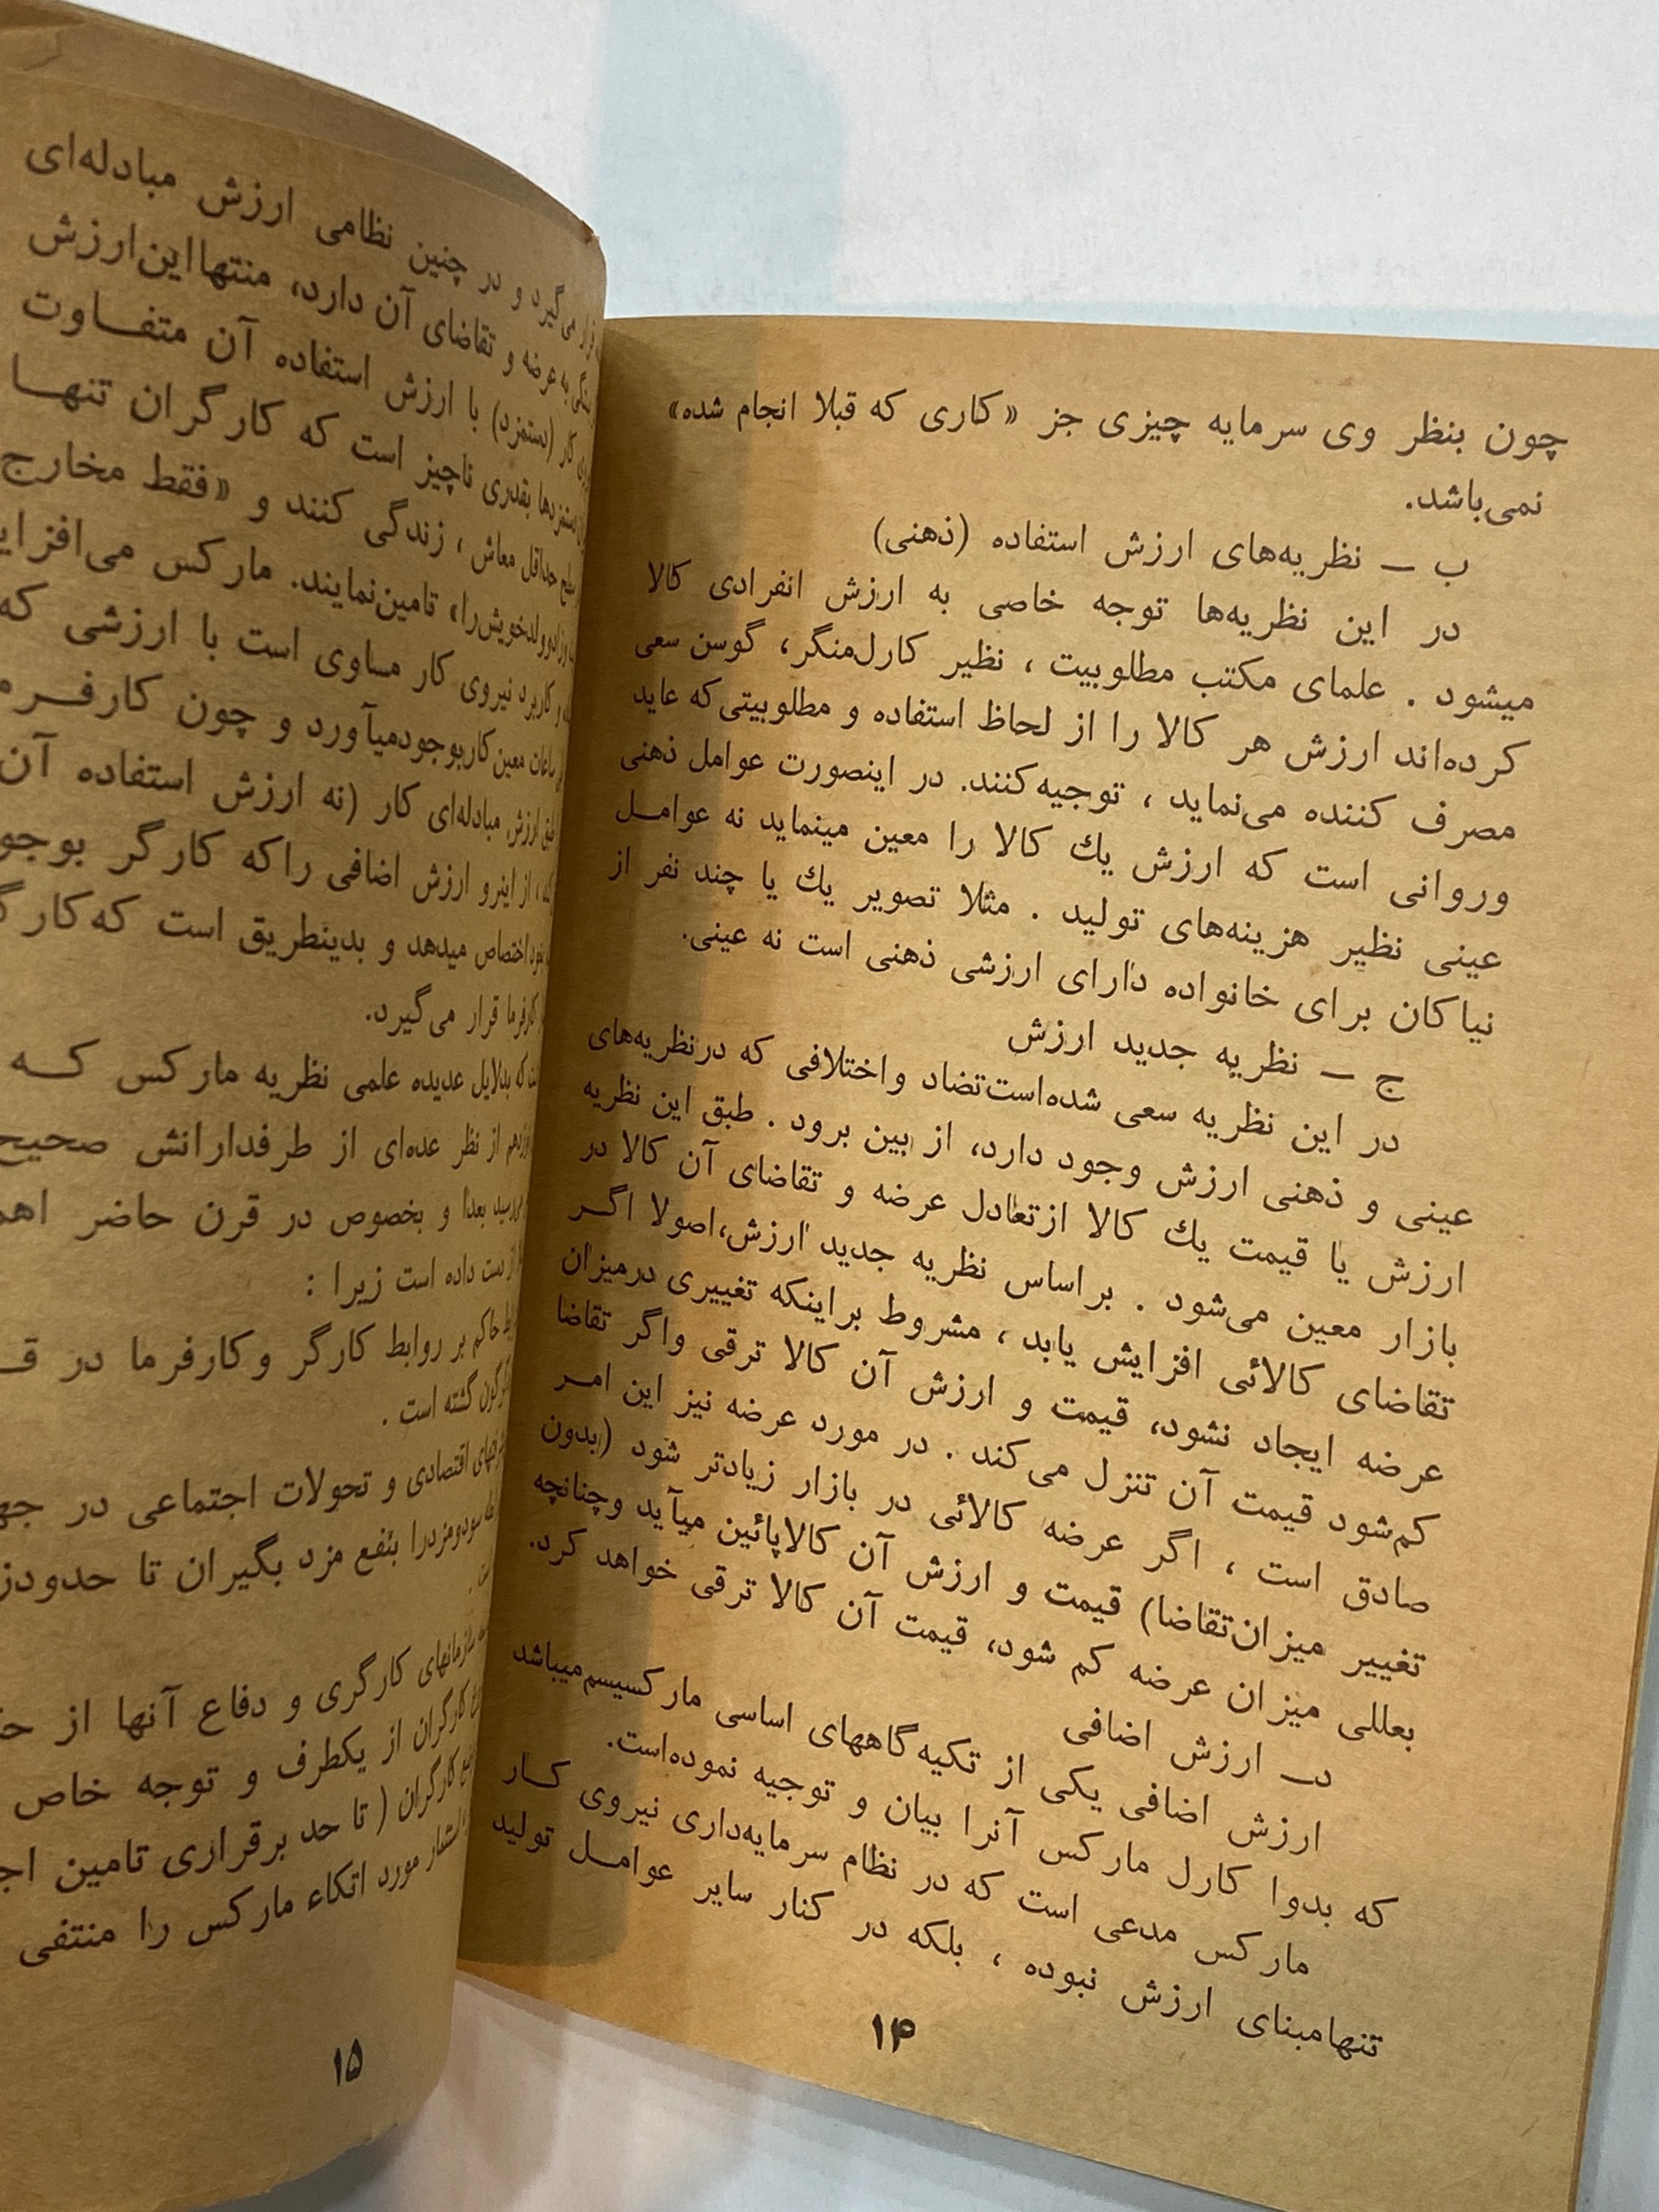 چون بنظر وی سرمایه چیزی جز «کاری که قبلا انجام شده»
نمی‌باشد.
ب ــ نظریه‌های ارزش استفاده (ذهنی)
در این نظریه‌ها توجه خاصی به ارزش انفرادی کالا
میشود . علمای مکتب مطلوبیت ، نظیر کارل‌منگر، گوسن سعی
کرده‌اند ارزش هر کالا را از لحاظ استفاده و مطلوبیتی‌که عاید
مصرف کننده می‌نماید ، توجیه‌کنند. در اینصورت عوامل ذهنی
وروانی است که ارزش یك کالا را معین مینماید نه عوامل
عینی نظیر هزینه‌های تولید . مثلا تصویر یك یا چند نفر از
نیاکان برای خانواده دارای ارزشی ذهنی است نه عینی.
ج ــ نظریه جدید ارزش
در این نظریه سعی شده‌است‌تضاد واختلافی که درنظریه‌های
عینی و ذهنی ارزش وجود دارد، از بین برود . طبق این نظریه
ارزش یا قیمت یك کالا ازتعادل عرضه و تقاضای آن کالا در
بازار معین می‌شود . براساس نظریه جدید ارزش،اصولا اگر
تقاضای کالائی افزایش یابد ، مشروط براینکه تغییری درمیزان
عرضه ایجاد نشود، قیمت و ارزش آن کالا ترقی واگر تقاضا
کم‌شود قیمت آن تنزل می‌کند . در مورد عرضه نیز این امر
صادق است ، اگر عرضه کالائی در بازار زیادتر شود (بدون
تغییر میزان‌تقاضا) قیمت و ارزش آن کالاپائین میآید وچنانچه
بعللی میزان عرضه کم شود، قیمت آن کالا ترقی خواهد کرد.
د‌ــ ارزش اضافی
ارزش اضافی یکی از تکیه‌گاههای اساسی مارکسیسم‌میباشد
که بدوا کارل مارکس آنرا بیان و توجیه نموده‌است.
مارکس مدعی است که در نظام سرمایه‌داری نیروی کار
تنهامبنای ارزش نبوده ، بلکه در کنار سایر عوامل تولید
۱۴
قرار می‌گیرد و در چنین نظامی ارزش مبادله‌ای
به عرضه و تقاضای آن دارد، منتهااین‌ارزش
کار (دستمزد) با ارزش استفاده آن متفاوت
دستمزدها بقدری ناچیز است که کارگران تنها
حداقل معاش ، زندگی کنند و «فقط مخارج
تامین‌نمایند. مارکس می‌افزاید
کاربرد نیروی کار مساوی است با ارزشی که
ساعات معین‌کاربوجودمیآورد و چون کارفرما
ارزش مبادله‌ای کار (نه ارزش استفاده آن
، از اینرو ارزش اضافی راکه کارگر بوجو
اختصاص میدهد و بدینطریق است که‌کارگ
کارفرما قرار می‌گیرد.
که بدلایل عدیده علمی نظریه مارکس که
از نظر عده‌ای از طرفدارانش صحیح
بعداً و بخصوص در قرن حاضر
از دست داده است زیرا :
حاکم بر روابط کارگر وکارفرما در
گشته است .
اقتصادی و تحولات اجتماعی در
سودومزدرا بنفع مزد بگیران تا
سازمانهای کارگری و دفاع آنها از
کارگران از یکطرف و توجه خاص
کارگران ( تا حد برقراری تامین
مورد اتکاء مارکس را منتفی
۱۵